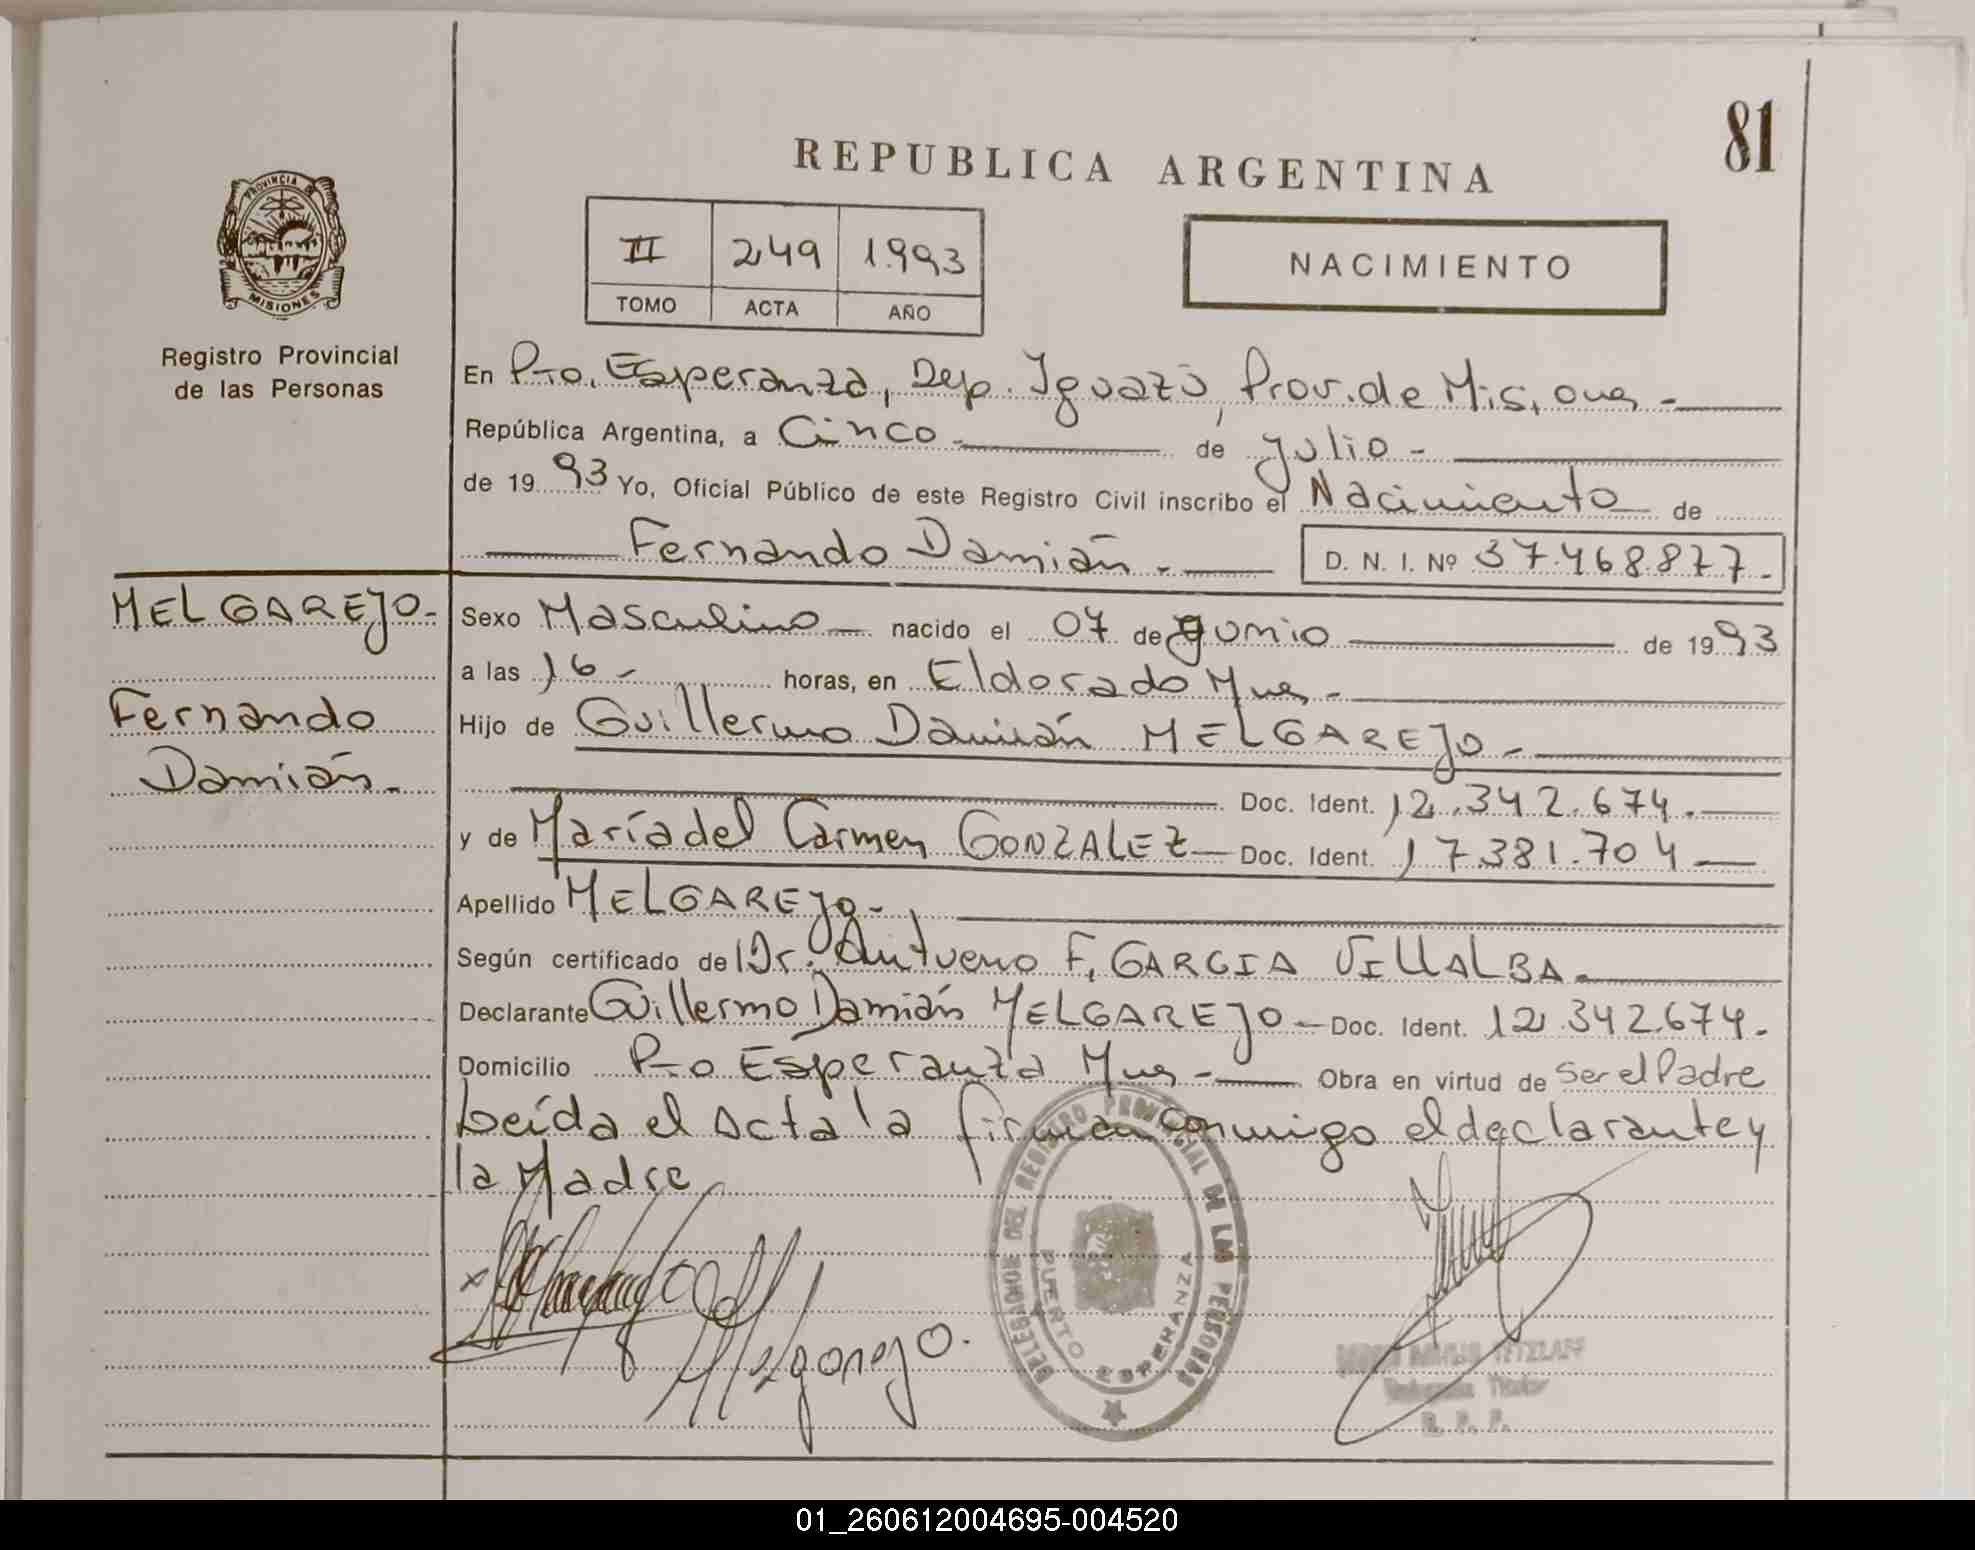 81
REPUBLICA ARGENTINA
PROVINCIA DE
MISIONES
Registro Provincial
de las Personas
II 249 1.993
TOMO ACTA AÑO
NACIMIENTO
En Pto. Esperanza, Dep. Iguazú, Prov. de Misiones -
República Argentina, a Cinco - de Julio -
de 19 93 Yo, Oficial Público de este Registro Civil inscribo el Nacimiento de
Fernando Damián - D. N. I. Nº 37.468.877.-
MELGAREJO.-
Fernando
Damián.-
Sexo Masculino nacido el 07 de Junio de 19 93
a las 16 - horas, en Eldorado Mnes -
Hijo de Guillermo Damián MELGAREJO -
Doc. Ident. 12.342.674.-
y de María del Carmen GONZALEZ - Doc. Ident. 17.381.704 -
Apellido MELGAREJO -
Según certificado de Dr. Antveno F. GARCIA VILLALBA.
Declarante Guillermo Damián MELGAREJO - Doc. Ident. 12.342.674.-
Domicilio Pto Esperanza Mnes - Obra en virtud de Ser el Padre
Leída el acta la firman conmigo el declarante y
la Madre
Melgarejo.
DELEGACION DEL REGISTRO PROVINCIAL DE LAS PERSONAS
PUERTO ESPERANZA
TETZLAFF
Titular
R. P. P.
01_260612004695-004520